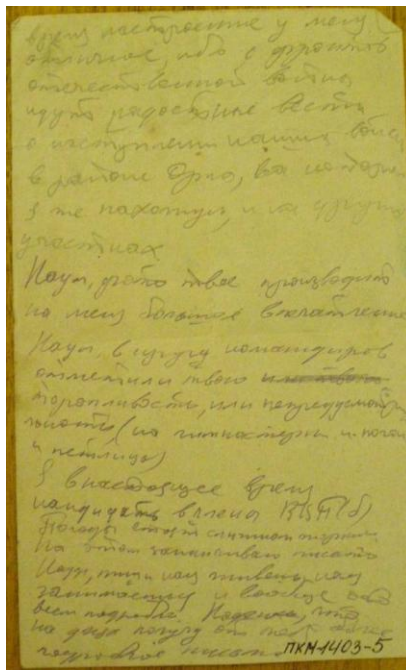 время настроение у меня
отличное, ибо с фронтов
отечественной войны
идут радостные вести
о наступлении наших войск
в районе Орла, в
я же нахожусь, и на других
участках
Наум, фото твое производит
на меня большое впечатление
Наум, в кругу командиров
отметили твою
торопливость, или непредусмотри
тельность (на гимнастерке и
и петлицы)
Я в настоящее время
кандидат в члены ВКП(б)
Погода стоит слишком
На этом заканчиваю писать
Наум, пиши как живешь, чем
занимаешься и вообще обо
всем подробно. Надеюсь, что
на днях получу от тебя
подробное письмо
ПКМ-1403-5